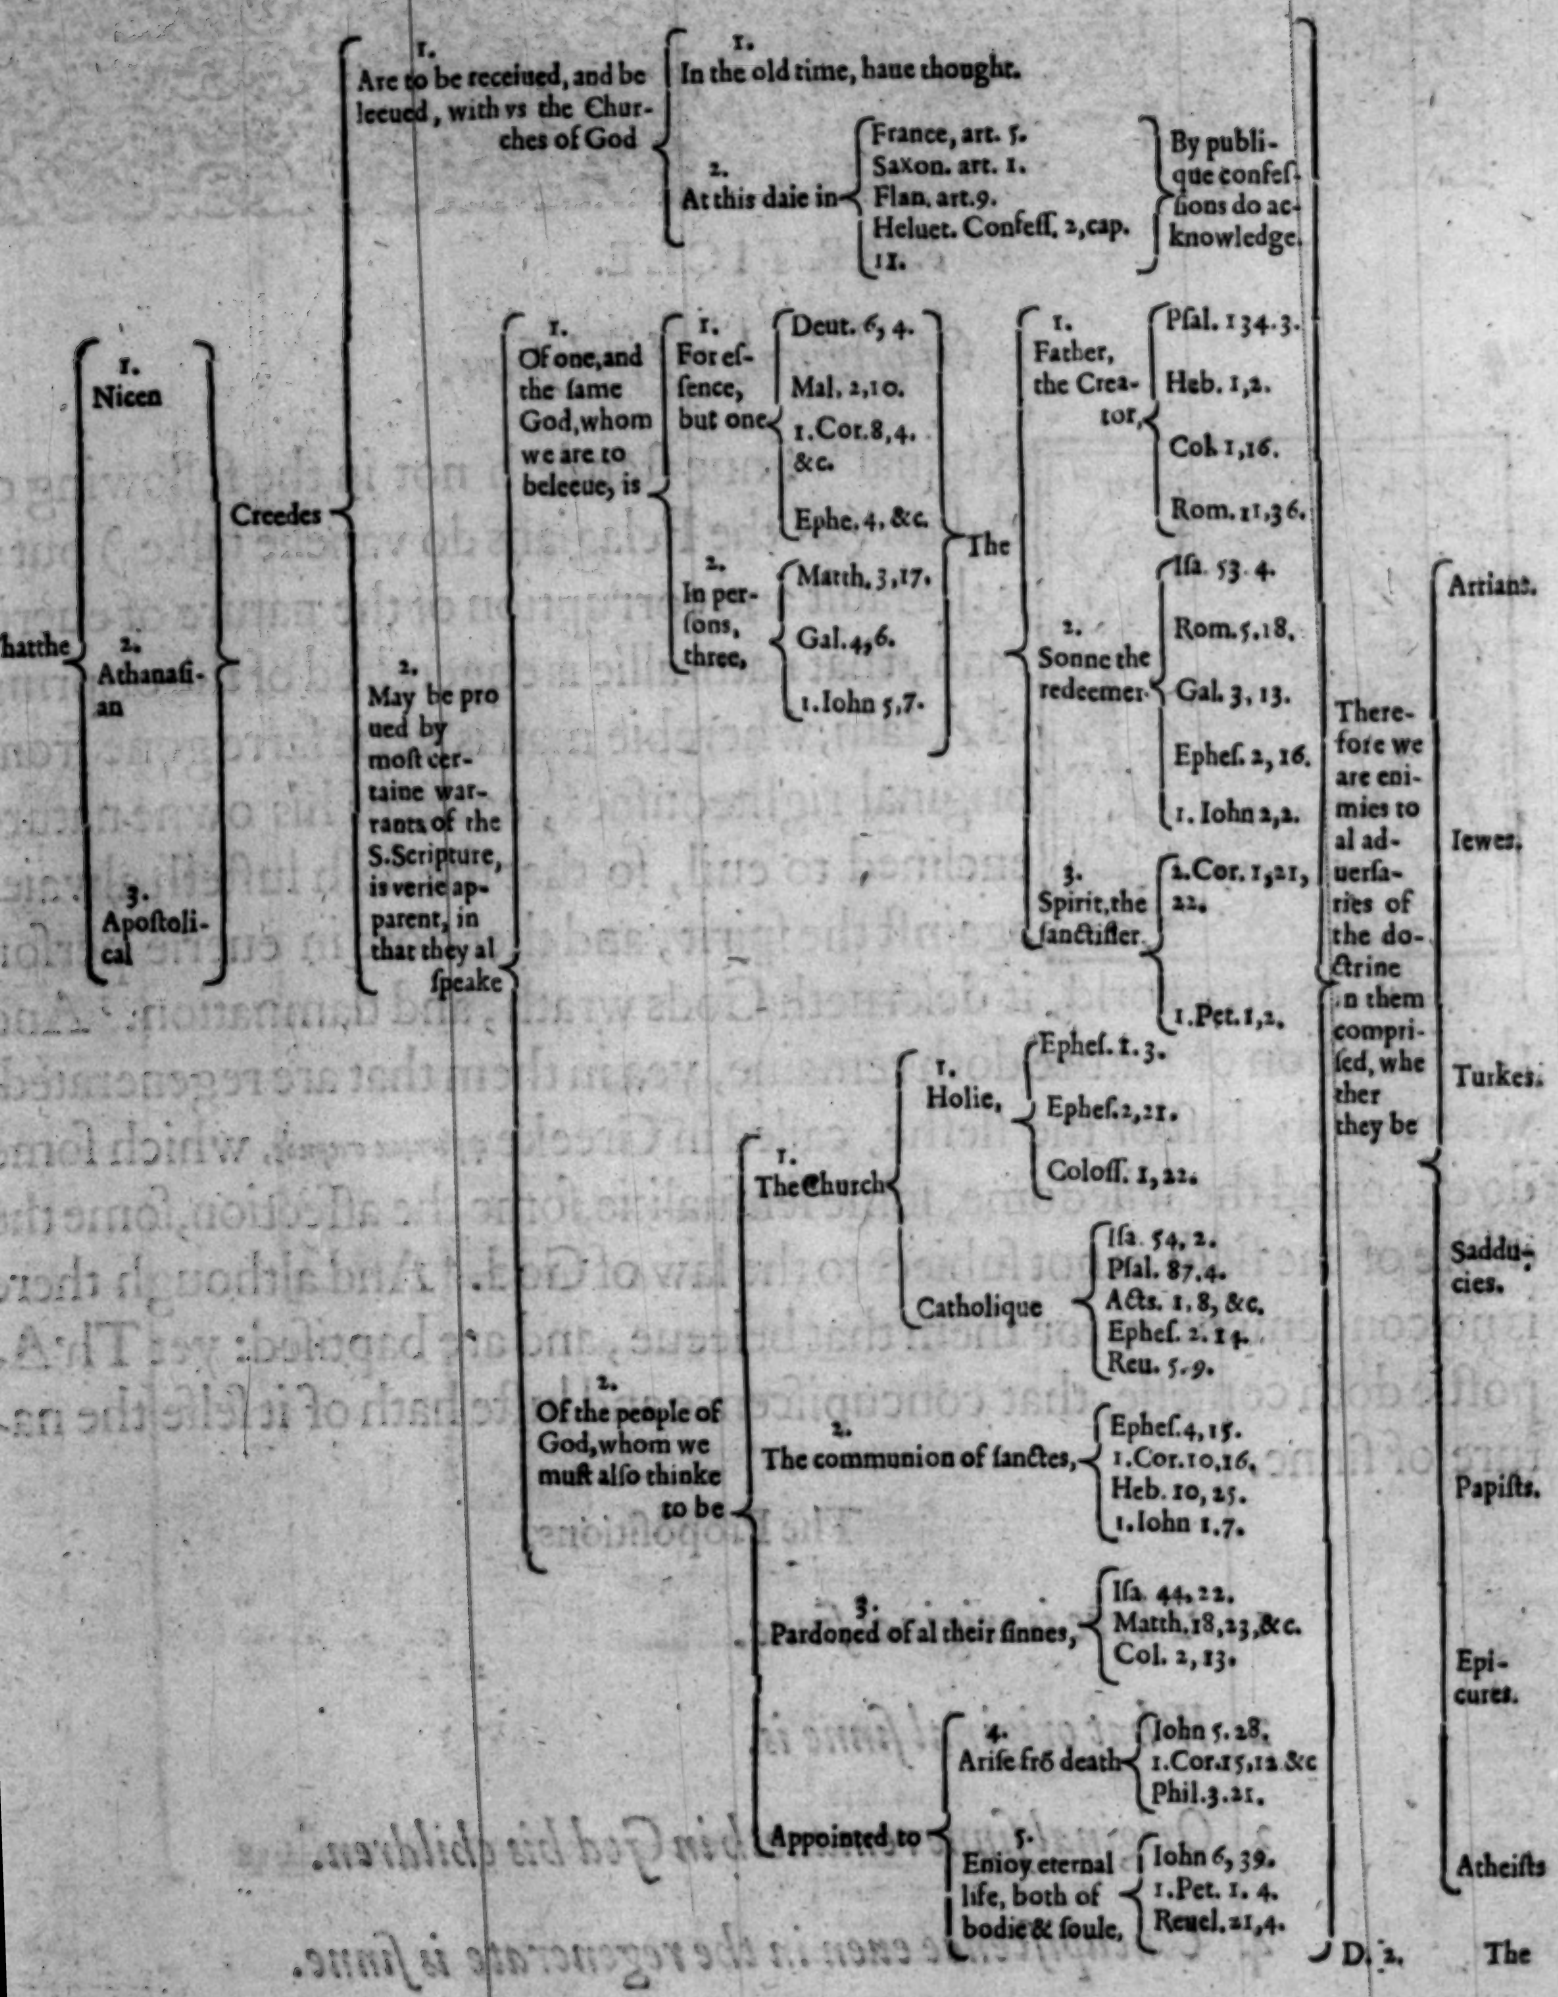 hatthe
1.
Nicen
2.
Athanasi-
an
3.
Apostoli-
cal
Creedes
1.
Are to be receiued, and be
leeued, with vs the Chur-
ches of God
1.
In the old time, haue thought.
2.
At this daie in
France, art. 5.
Saxon. art. 1.
Flan. art.9.
Heluet. Confess. 2,cap.
11.
By publi-
que confes-
sions do ac-
knowledge.
2.
May be pro
ued by
most cer-
taine war-
rants of the
S.Scripture,
is verie ap-
parent, in
that they al
speake
1.
Of one,and
the same
God,whom
we are to
beleeue, is
1.
For es-
sence,
but one
Deut. 6, 4.
Mal. 2,10.
1.Cor.8,4.
&c.
Ephe. 4. &c.
2.
In per-
sons,
three,
Matth. 3,17.
Gal. 4,6.
1.Iohn 5,7.
The
1.
Father,
the Crea-
tor,
Psal. 134.3.
Heb. 1,2.
Col. 1,16.
Rom. 11,36.
2.
Sonne the
redeemer
Isa. 53. 4.
Rom. 5.18.
Gal. 3, 13.
Ephes. 2, 16.
1. Iohn 2,2.
3.
Spirit,the
sanctifier
2.Cor. 1,21,
22.
1.Pet. 1,2.
2.
Of the people of
God,whom we
must also thinke
to be
1.
The Church
1.
Holie,
Ephes. 1. 3.
Ephes.2,21.
Coloss. 1, 22.
Catholique
Isa. 54, 2.
Psal. 87.4.
Acts. 1.8, &c.
Ephes. 2. 14.
Reu. 5.9.
2.
The communion of sanctes,
Ephes.4,15.
1.Cor.10,16.
Heb. 10, 25.
1.Iohn 1.7.
3.
Pardoned of al their sinnes,
Isa. 44, 22.
Matth.18,23,&c.
Col. 2, 13.
Appointed to
4.
Arise frō death
Iohn 5. 28.
1.Cor.15,12 &c
Phil.3.21.
5.
Enioy eternal
life, both of
bodie & soule,
Iohn 6, 39.
1.Pet. 1. 4.
Reuel.21,4.
There-
fore we
are eni-
mies to
al ad-
uersa-
ries of
the do-
ctrine
in them
compri-
sed, whe
ther
they be
Arrians.
Iewes.
Turkes.
Saddu-
cies.
Papists.
Epi-
cures.
Atheists
D. 2.
The